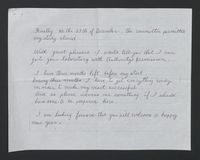 Finally on the 27th of December, the committee permitted
my study abroad.
With great pleasure I would tell you that I can
join your laboratory with Authority Permission.
I have three months left before my start
during three months I have to get everything ready
in order to make my visit successful.
And so please advise me something if I should
have to be in
I am looking forward that you will welcome a happy
new year.